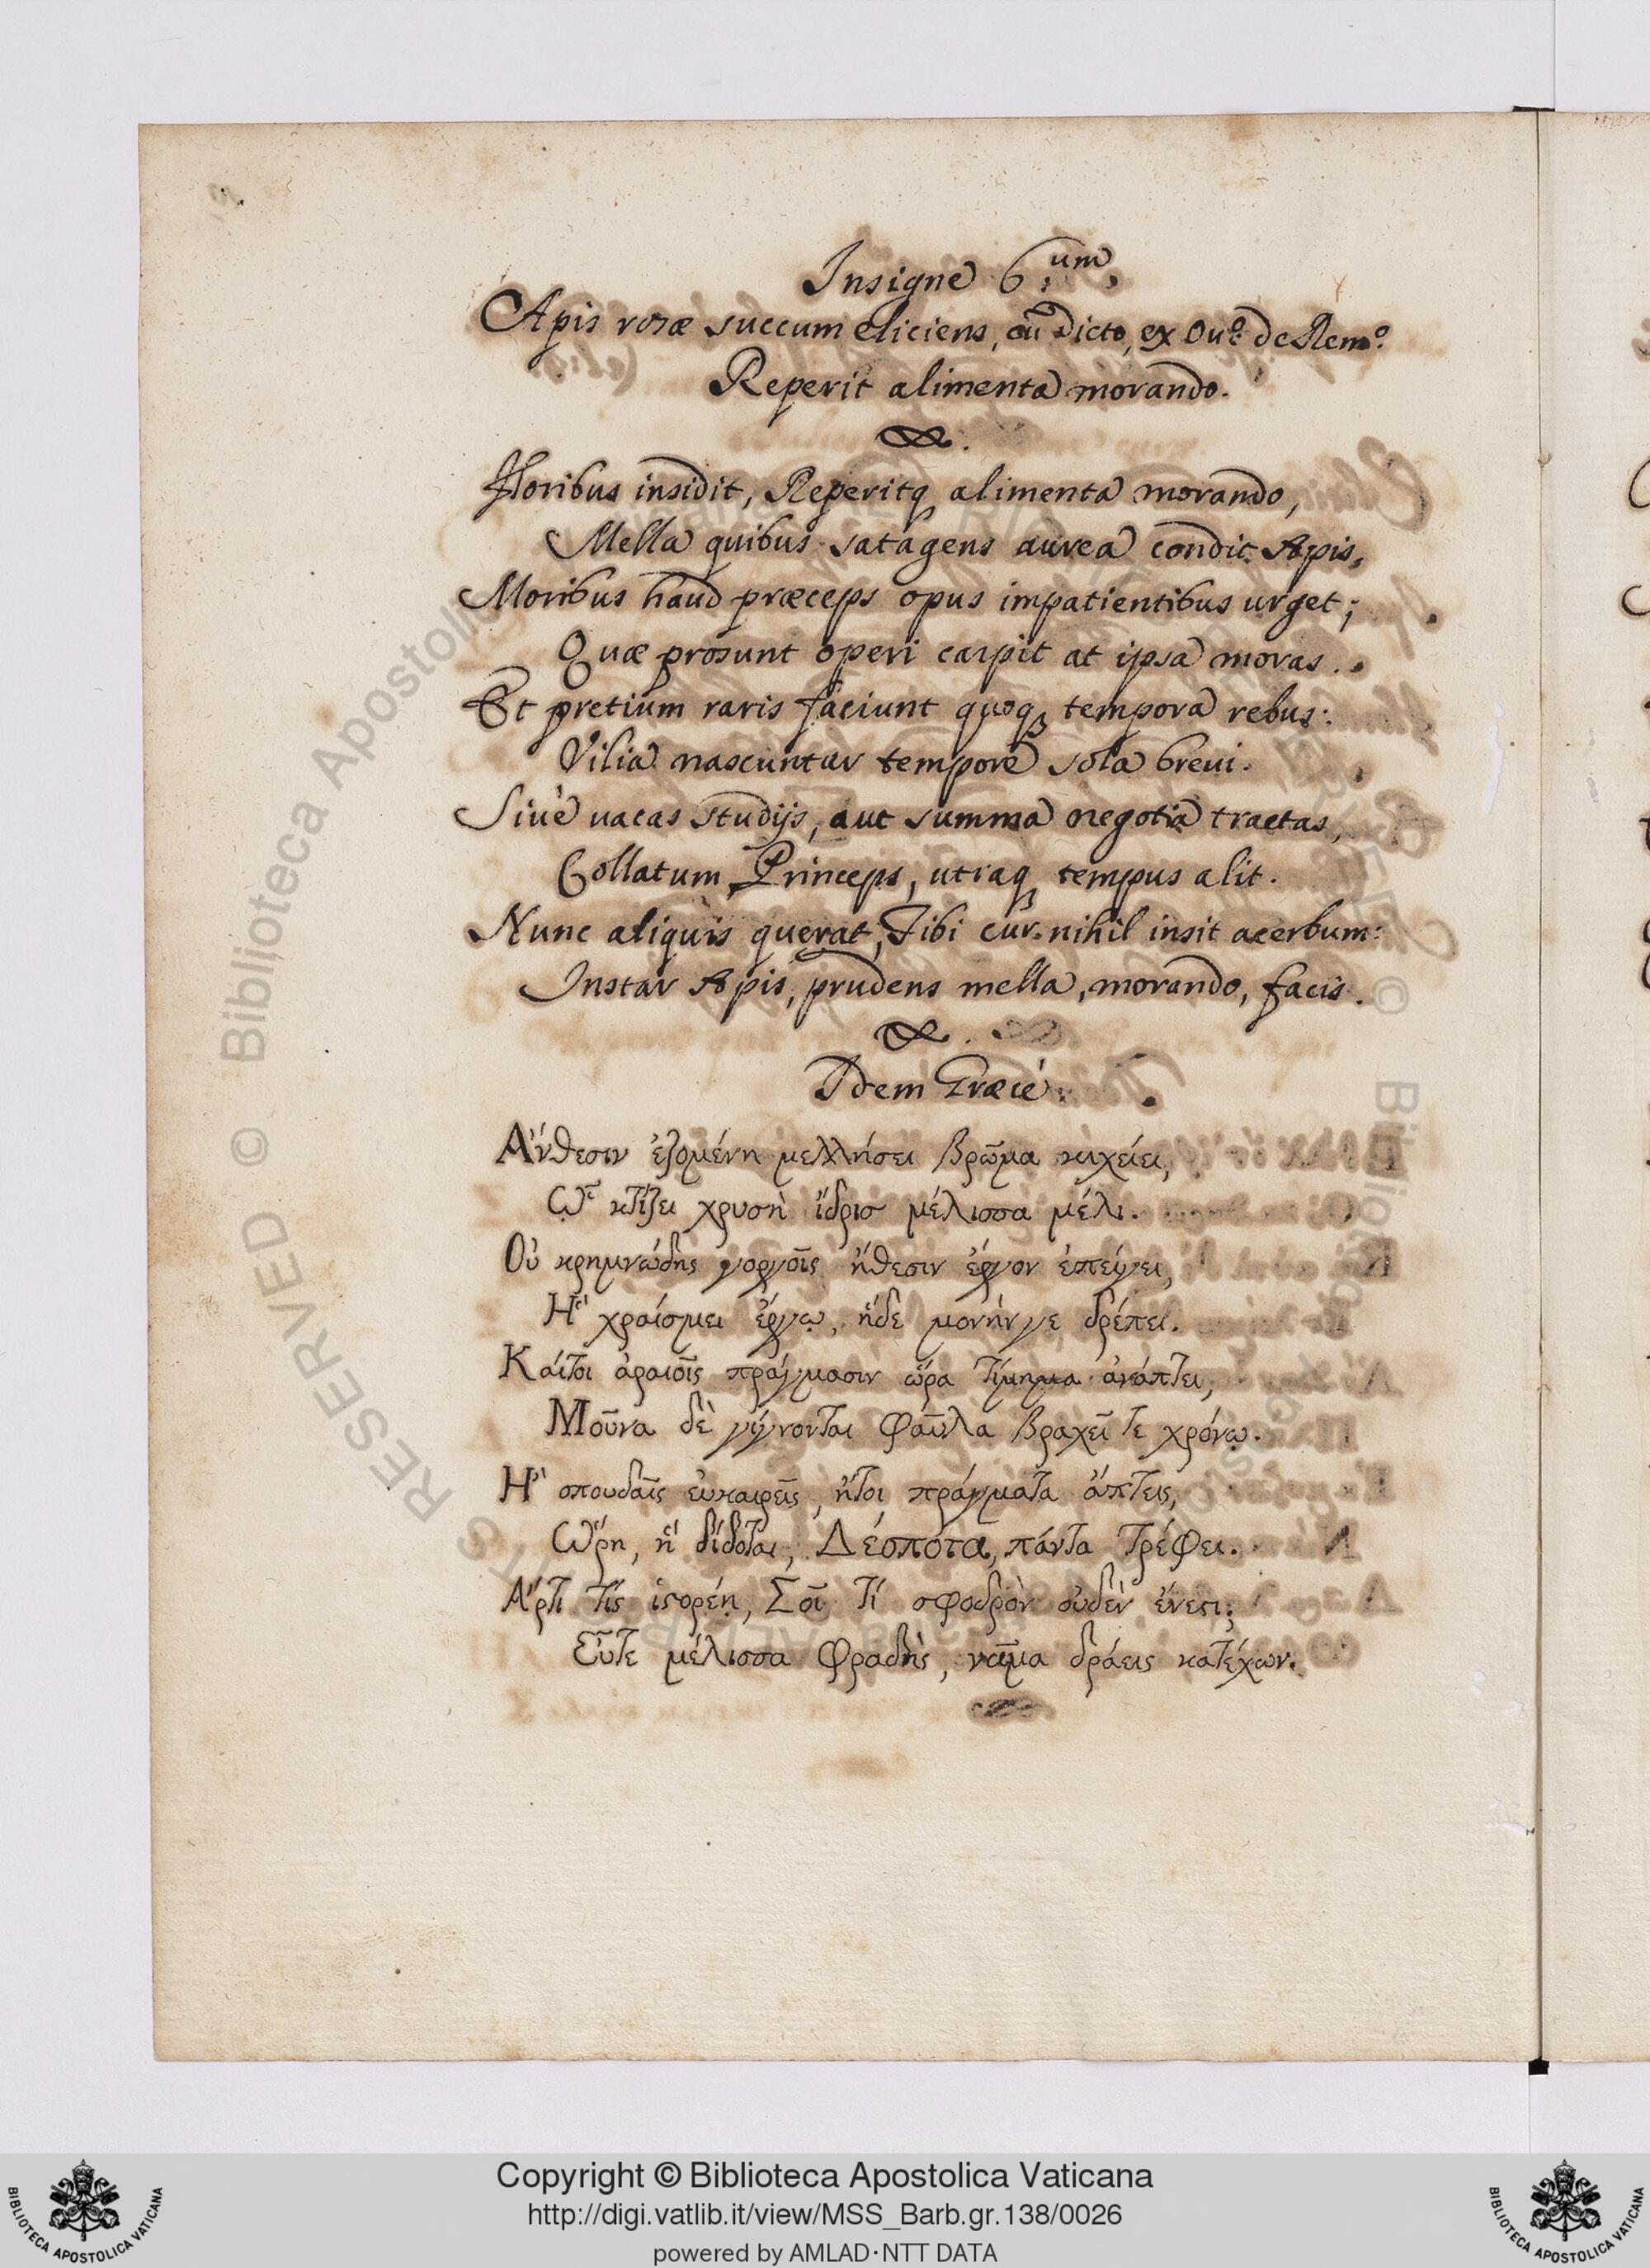 Insigne 6.um
Apis rosæ succum eliciens, cũ Dicto, ex Ouº. de Remº.
Reperit alimenta morando.
Floribus insidit, Reperitq alimenta morando,
Mella quibus satagens aurea condit Apis,
Moribus haud præceps opus impatientibus urget;
Quæ prosunt operi carpit at ipsa moras.
Et pretium raris faciunt quoq tempora rebus:
Vilia nascuntur tempore sola breui.
Siuè uacas studijs, aut summa negotia tractas,
Collatum Princeps, utraq tempus alit.
Nunc aliquis querat, Tibi cur nihil insit acerbum:
Instar Apis, prudens mella, morando, facis.
Idem Græcè.
Αʹνθεσιν ἑζομένη μελλήσει βρῶμα κιχείει,
ᾯ κτίζει χρυσὴ ἴδρισ μέλισσα μέλι.
Οὐ κρημνώδης γοργοῖς ἤθεσιν ἔργον ἐπείγει,
Ἣ χραίσμει ἔργῳ, ἥδε μονήνγε δρέπει.
Καίτοι ἀραιοῖς πράγμασιν ὥρα τίμημα ἀνάπτει,
Μοῦνα δὲ γίγνονται φαῦλα βραχεῖ τε χρόνῳ.
Ἢ σπουδαῖς εὐκαιρεῖς, ἤτοι πράγματα ἅπτεις,
Ὥρη, ἥ δίδοται, Δέσποτα, πάντα τρέφει.
Ἄρτι τίς ἱστορέῃ, Σοῖ τί σφοδρὸν οὐδὲν ἔνεστι;
Εὖτε μέλισσα φραδὴς, νᾶμα δράεις κατέχων.
Copyright © Biblioteca Apostolica Vaticana
http://digi.vatlib.it/view/MSS_Barb.gr.138/0026
powered by AMLAD·NTT DATA
BIBLIOTECA APOSTOLICA VATICANA
BIBLIOTECA APOSTOLICA VATICANA